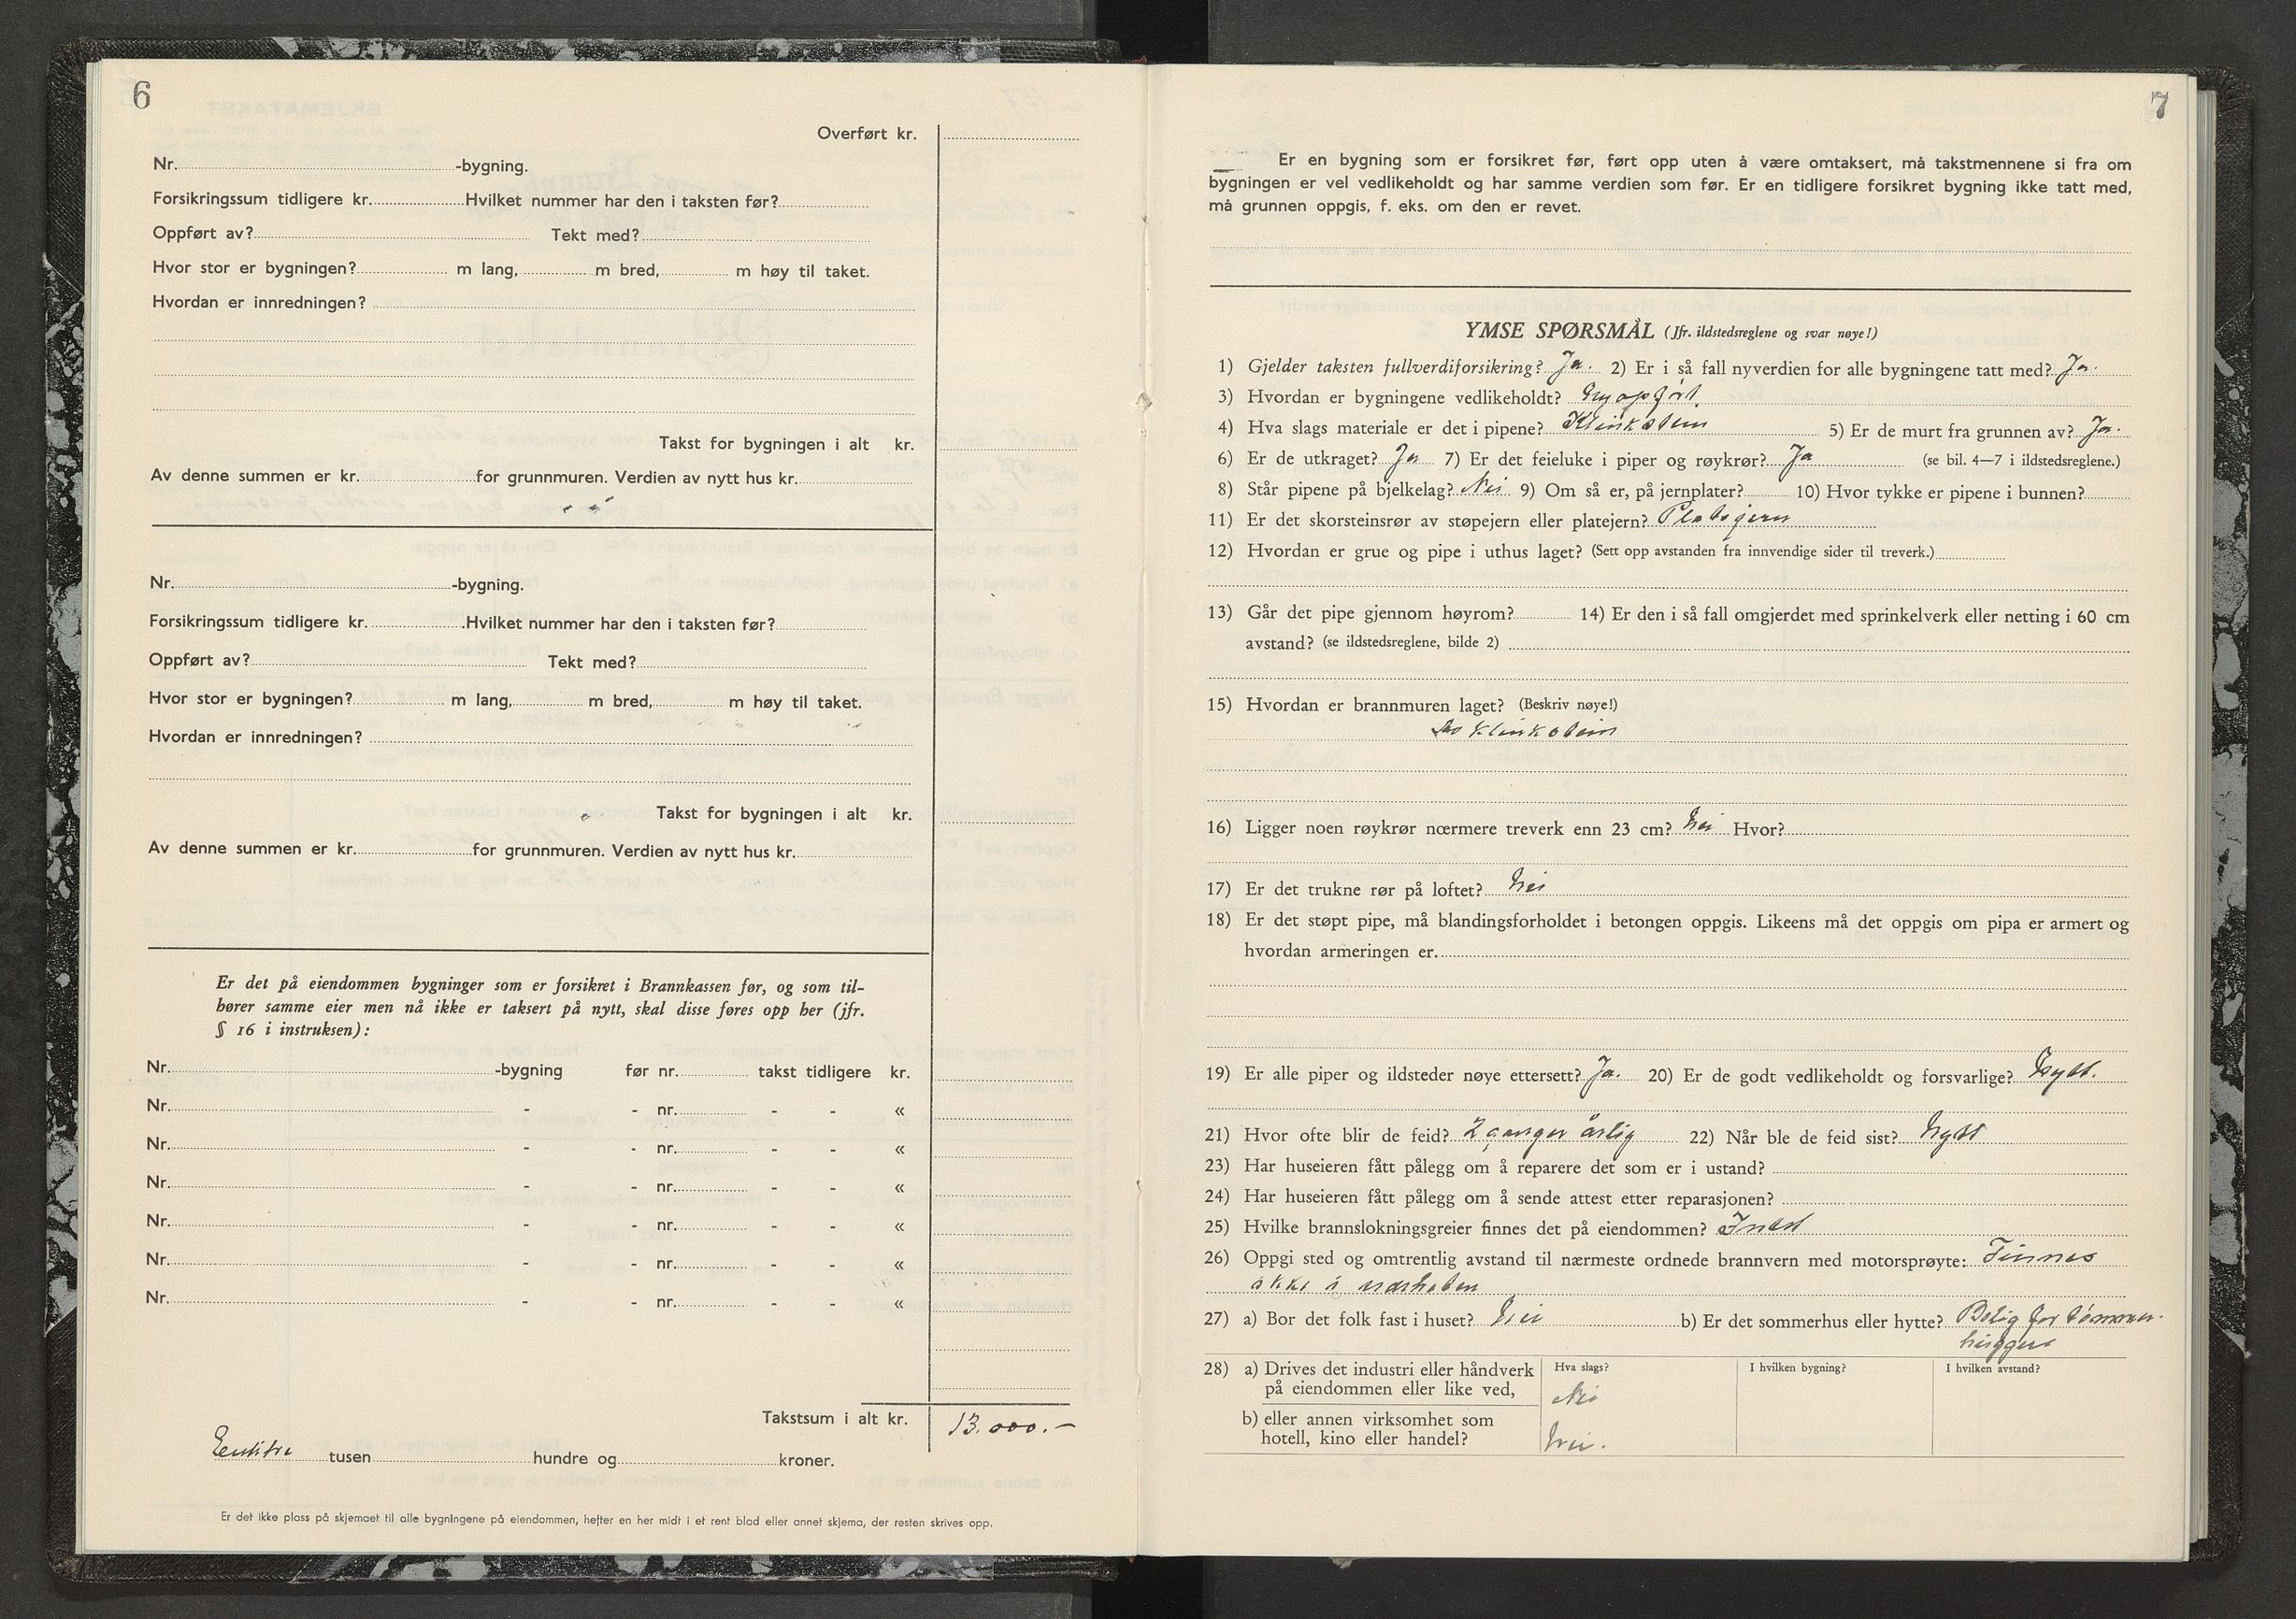 6
Overført kr.
Nr. -bygning.
Forsikringssum tidligere kr. Hvilket nummer har den i taksten før?
Oppført av? Tekt med?
Hvor stor er bygningen? m lang, m bred, m høy til taket.
Hvordan er innredningen?
Takst for bygningen i alt kr.
Av denne summen er kr. for grunnmuren. Verdien av nytt hus kr.
Nr. -bygning.
Forsikringssum tidligere kr. Hvilket nummer har den i taksten før?
Oppført av? Tekt med?
Hvor stor er bygningen? m lang, m bred, m høy til taket.
Hvordan er innredningen?
Takst for bygningen i alt kr.
Av denne summen er kr. for grunnmuren. Verdien av nytt hus kr.
Er det på eiendommen bygninger som er forsikret i Brannkassen før, og som til-
hører samme eier men nå ikke er taksert på nytt, skal disse føres opp her (jfr.
§ 16 i instruksen):
Nr. -bygning før nr. takst tidligere kr.
Nr. - - nr. - - «
Nr. - - nr. - - «
Nr. - - nr. - - «
Nr. - - nr. - - «
Nr. - - nr. - - «
Nr. - - nr. - - «
Takstsum i alt kr. 13.000.-
tusen hundre og kroner.
Er det ikke plass på skjemaet til alle bygningene på eiendommen, hefter en her midt i et rent blad eller annet skjema, der resten skrives opp.
7
Er en bygning som er forsikret før, ført opp uten å være omtaksert, må takstmennene si fra om
bygningen er vel vedlikeholdt og har samme verdien som før. Er en tidligere forsikret bygning ikke tatt med,
må grunnen oppgis, f. eks. om den er revet.
YMSE SPØRSMÅL (Jfr. ildstedsreglene og svar nøye!)
1) Gjelder taksten fullverdiforsikring? Ja. 2) Er i så fall nyverdien for alle bygningene tatt med? Ja.
3) Hvordan er bygningene vedlikeholdt? Nyopført.
4) Hva slags materiale er det i pipene? Klinkstein 5) Er de murt fra grunnen av? Ja.
6) Er de utkraget? Ja 7) Er det feieluke i piper og røykrør? Ja (se bil. 4—7 i ildstedsreglene.)
8) Står pipene på bjelkelag? Nei 9) Om så er, på jernplater? 10) Hvor tykke er pipene i bunnen?
11) Er det skorsteinsrør av støpejern eller platejern? Platejern
12) Hvordan er grue og pipe i uthus laget? (Sett opp avstanden fra innvendige sider til treverk.)
13) Går det pipe gjennom høyrom? 14) Er den i så fall omgjerdet med sprinkelverk eller netting i 60 cm
avstand? (se ildstedsreglene, bilde 2)
15) Hvordan er brannmuren laget? (Beskriv nøye!)
klinkstein
16) Ligger noen røykrør nœrmere treverk enn 23 cm? Nei Hvor?
17) Er det trukne rør på loftet? Nei
18) Er det støpt pipe, må blandingsforholdet i betongen oppgis. Likeens må det oppgis om pipa er armert og
hvordan armeringen er.
19) Er alle piper og ildsteder nøye ettersett? Ja. 20) Er de godt vedlikeholdt og forsvarlige? Nytt.
21) Hvor ofte blir de feid? 2 ganger årlig 22) Når ble de feid sist? Nytt
23) Har huseieren fått pålegg om å reparere det som er i ustand?
24) Har huseieren fått pålegg om å sende attest etter reparasjonen?
25) Hvilke brannslokningsgreier finnes det på eiendommen? Intet
26) Oppgi sted og omtrentlig avstand til nærmeste ordnede brannvern med motorsprøyte: Finnes
ikke i nærheten
27) a) Bor det folk fast i huset? Nei b) Er det sommerhus eller hytte? Bolig for tømmer-
huggere
28) a) Drives det industri eller håndverk Hva slags? I hvilken bygning? I hvilken avstand?
på eiendommen eller like ved, Nei
b) eller annen virksomhet som
hotell, kino eller handel? Nei.